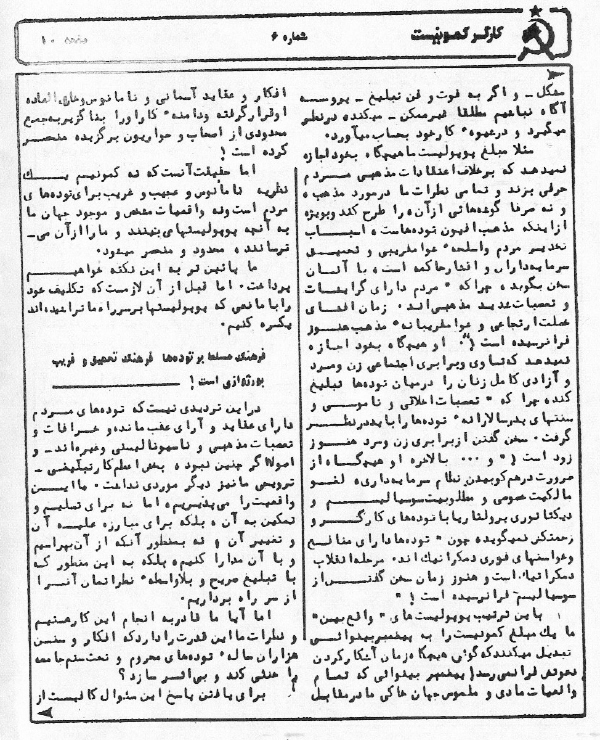 کارگر کمونیست
شماره ۶
صفحه ۱۰
مشکل ــ و اگر به فوت و فن تبلیغ ــ پروسسه
آگاه نباشیم مطلقا غیرممکن ــ میکند در نظر
میگیرد و در شیوه کار خود بحساب میآورد.
مثلا مبلغ پوپولیست ما هیچگاه بخود اجازه
نمیدهد که برخلاف اعتقادات مذهبی مردم
حرفی بزند و تمامی نظرات ما در مورد مذهب ،
و نه صرفا گوشه‌هائی از آن ، را طرح کند و بویژه
از اینکه مذهب افیون توده‌هاست ، اسباب
تخدیر مردم و اسلحه عوامفریبی و تحمیق
سرمایه‌داران و اقشار حاکمه است ، با آنان
سخن بگوید ، چرا که " مردم دارای گرایشات
و تعصبات شدید مذهبی‌اند. زمان افشای
خصلت ارتجاعی و عوامفریبانه مذهب هنوز
فرا نرسیده است !" او هیچگاه بخود اجازه
نمیدهد که تساوی و برابری اجتماعی زن و مرد
و آزادی کامل زنان را در میان توده‌ها تبلیغ
کند ، چرا که " تعصبات اخلاقی و ناموسی و
سنتهای پدرسالارانه توده‌ها را باید در نظر
گرفت. سخن گفتن از برابری زن و مرد هنوز
زود است !" و ... بالاخره او هیچگاه از
ضرورت درهم کوبیدن نظام سرمایه‌داری ، لغو
مالکیت خصوصی و مطلوبیت سوسیالیسم و
دیکتاتوری پرولتاریا با توده‌های کارگر و
زحمتکش نمیگوید ، چون " توده‌ها دارای منافع
و خواستهای فوری دمکراتیک‌اند. مرحله انقلاب
دمکراتیک است و هنوز زمان سخن گفتن از
سوسیالیسم فرا نرسیده است !"
باین ترتیب پوپولیست‌های " واقع بین "
ما یک مبلغ کمونیست را به پیغمبر بینوائی
تبدیل میکنند که گوئی هیچگاه زمان آشکار کردن
دعوتش فرا نمی‌رسد ! پیغمبر بینوائی که تمام
واقعیات مادی و ملموس جهان خاکی ما در مقابل
افکار و عقاید آسمانی و نامانوس و خارق‌العاده
او قرار گرفته و دامنه کار او را بناگزیر به جمع
محدودی از اصحاب و حواریون برگزیده منحصر
کرده است !
اما حقیقت آنست که نه کمونیسم یک
نظریه نامانوس و عجیب و غریب برای توده‌های
مردم است و نه واقعیات مشخص و موجود جهان ما
به آنچه پوپولیستها می‌بینند و ما را از آن می‌ــ
ترسانند ، محدود و منحصر میشود.
ما پائین تر به این نکته خواهیم
پرداخت. اما قبل از آن لازمست که تکلیف خود
را با مانعی که پوپولیستها بر سر راه ما تراشیده‌اند
یکسره کنیم.
فرهنگ مسلط بر توده‌ها فرهنگ تحمیق و فریب
بورژوازی است !
در این تردیدی نیست که توده‌های مردم
دارای عقاید و آرای عقب مانده و خرافات و
تعصبات مذهبی و ناسیونالیستی و غیره‌اند ــ و
اصولا اگر چنین نبود ، بخش اعظم کار تبلیغی ــ
ترویجی ما نیز دیگر موردی نداشت. ما این
واقعیت را می‌پذیریم ، اما نه برای تسلیم و
تمکین به آن ، بلکه برای مبارزه علیه آن
و تغییر آن ، و نه بمنظور آنکه از آن بهراسیم
و با آن مدارا کنیم ، بلکه به این منظور که
با تبلیغ صریح و بلاواسطه نظراتمان آنرا
از سر راه برداریم.
اما آیا ما قادر به انجام این کار هستیم
و نظرات ما این قدرت را دارد که افکار و سنن
هزاران ساله توده‌های محروم و تحت ستم جامعه
را خنثی کند و بی‌اثر سازد ؟
برای یافتن پاسخ این سئوال کافیست از